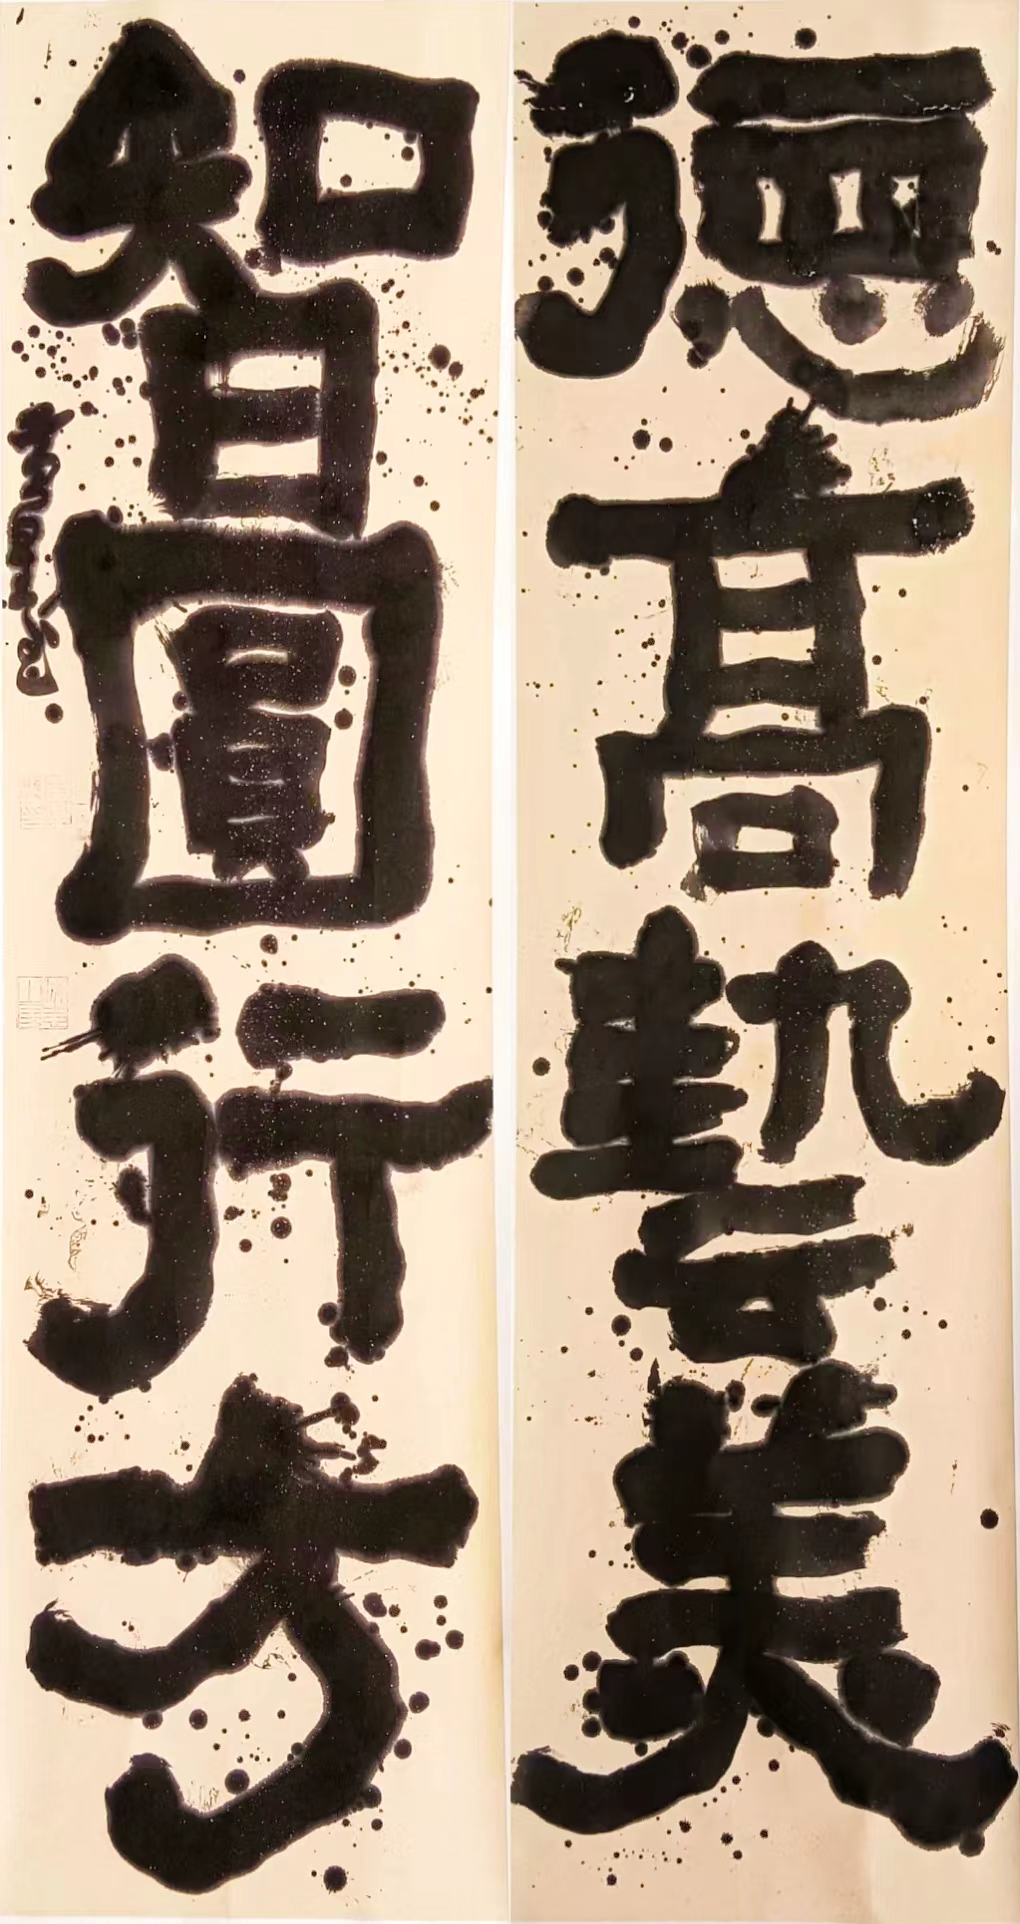 德高藝美
智圓行方